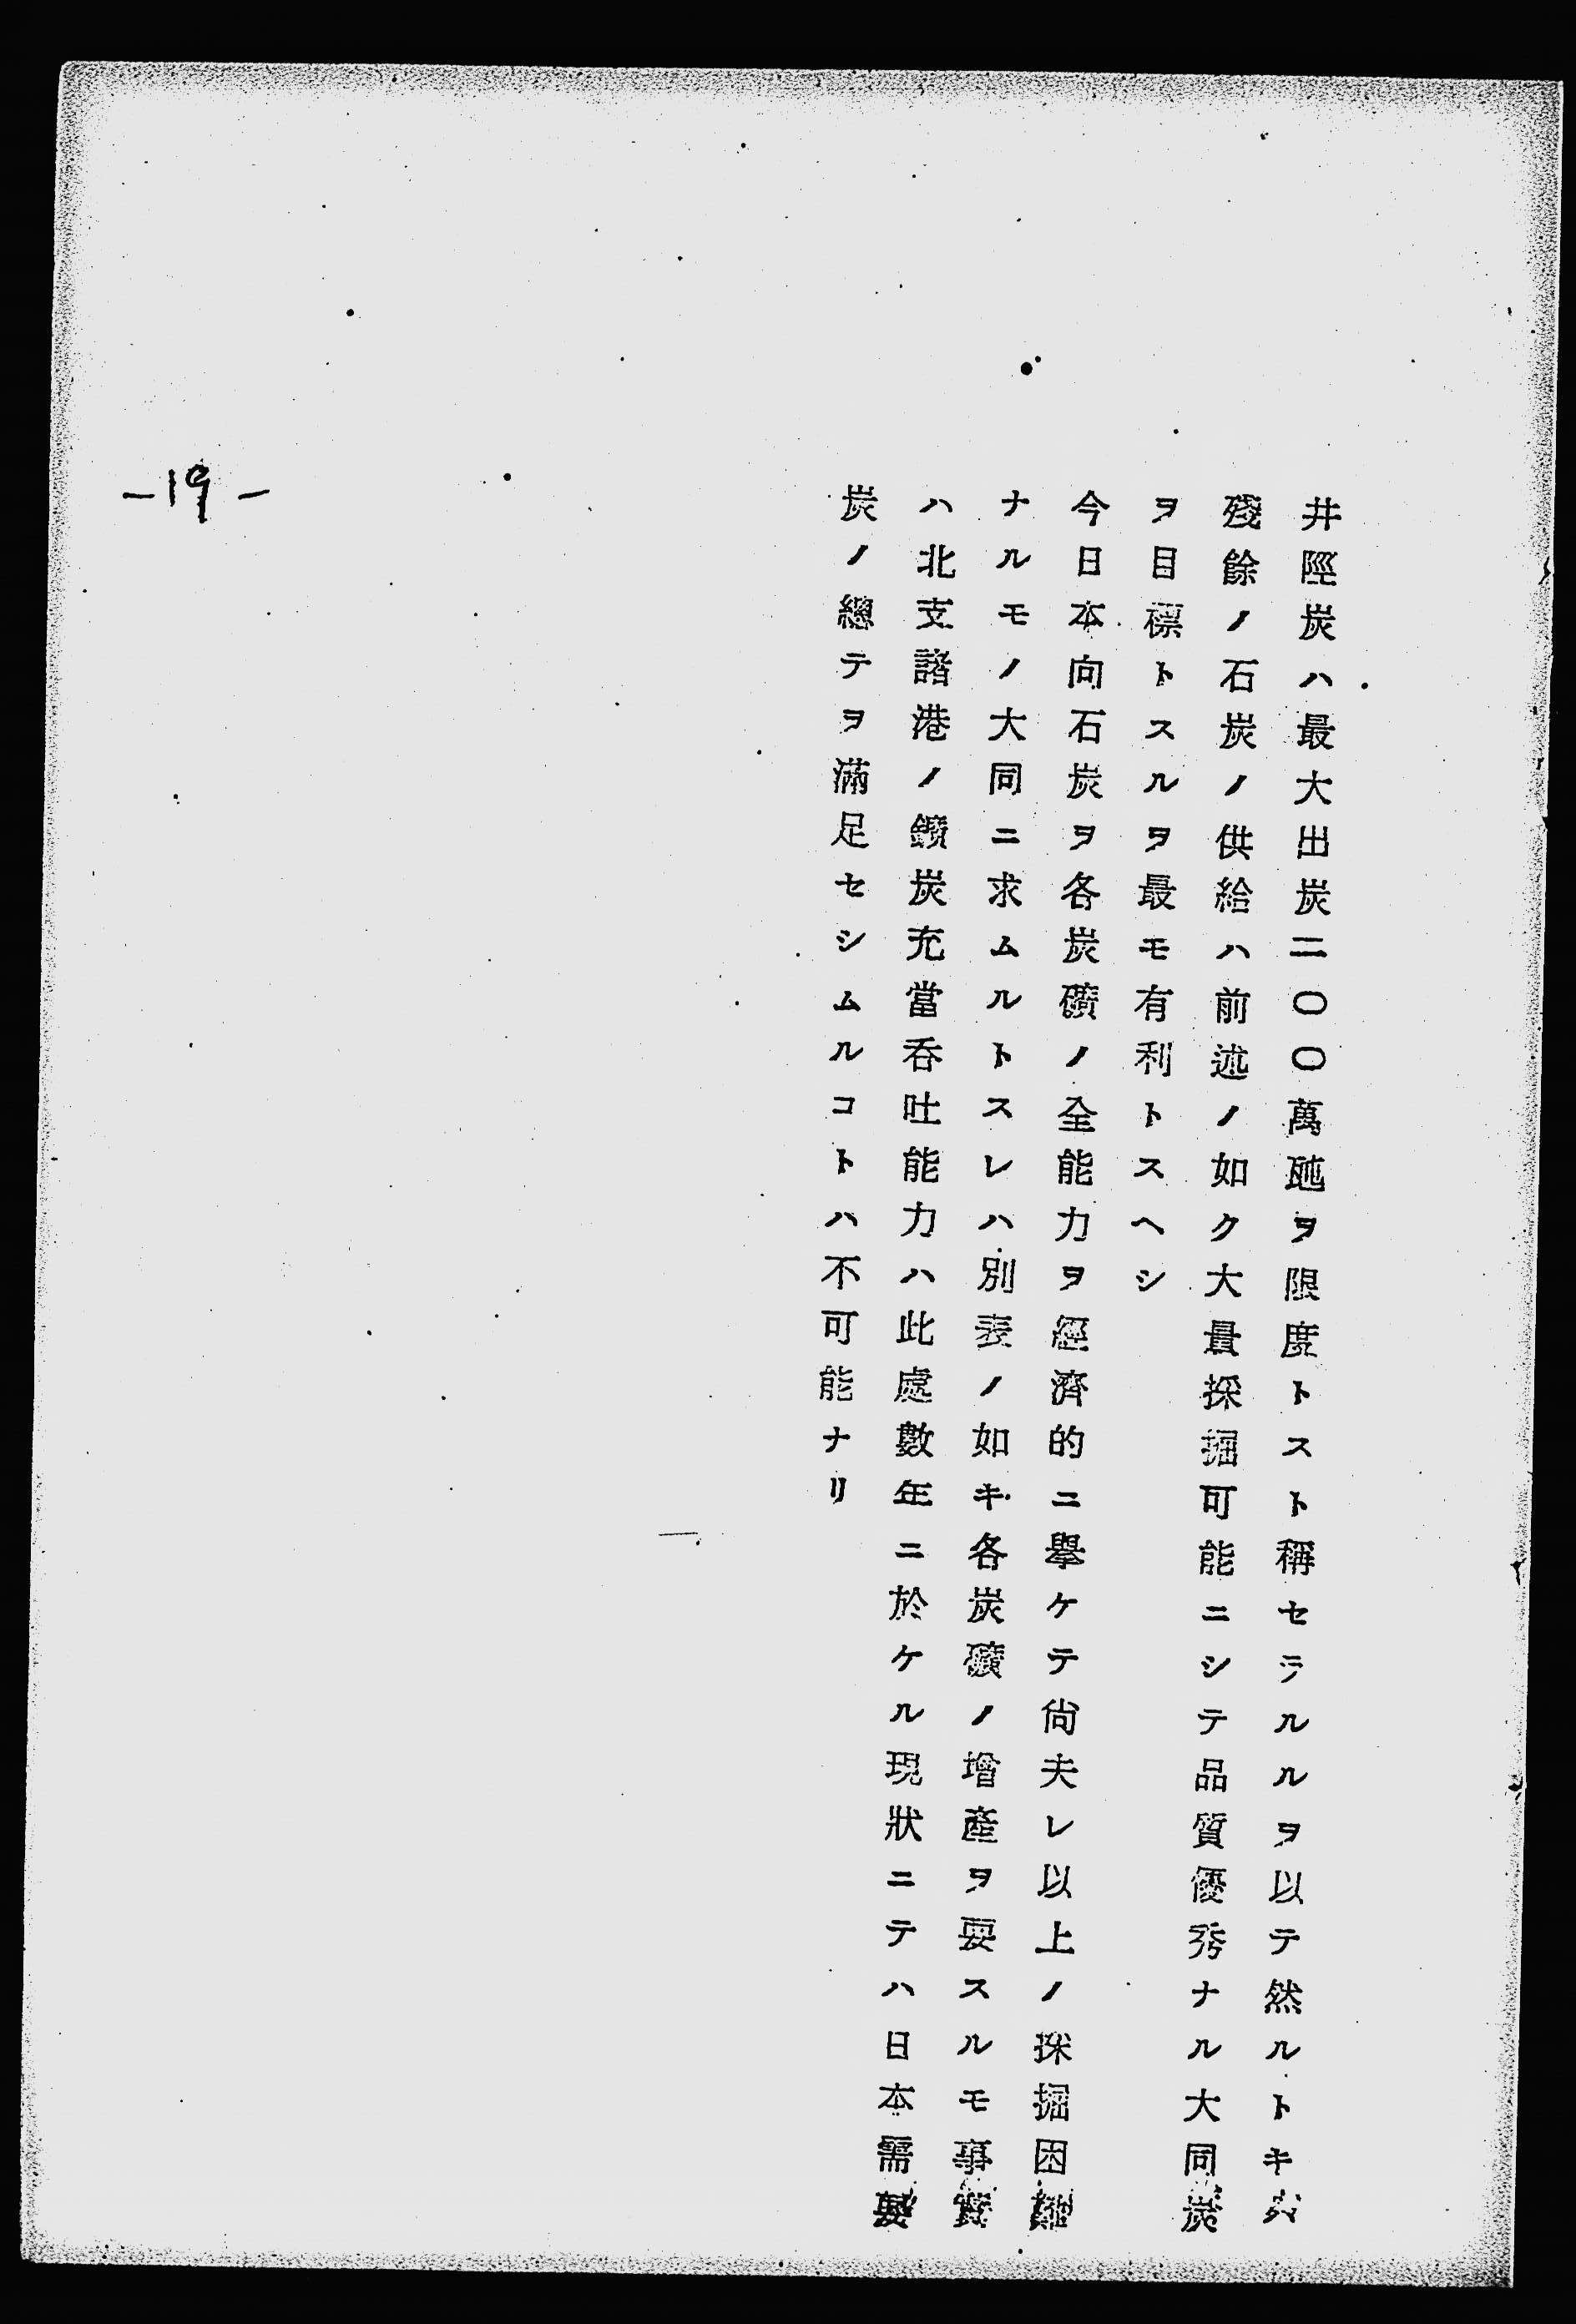 井陘炭ハ最大出炭二〇〇萬瓲ヲ限度トスト稱セラルルヲ以テ然ルトキハ
殘餘ノ石炭ノ供給ハ前述ノ如ク大量採掘可能ニシテ品質優秀ナル大同炭
ヲ目標トスルヲ最モ有利トスヘシ
今日本向石炭ヲ各炭礦ノ全能力ヲ經濟的ニ擧ケテ尙夫レ以上ノ採掘困難
ナルモノノ大同ニ求ムルトスレハ別表ノ如キ各炭礦ノ增產ヲ要スルモ事實
ハ北支諸港ノ鑛炭充當呑吐能力ハ此處數年ニ於ケル現狀ニテハ日本需要
炭ノ總テヲ滿足セシムルコトハ不可能ナリ
-19-